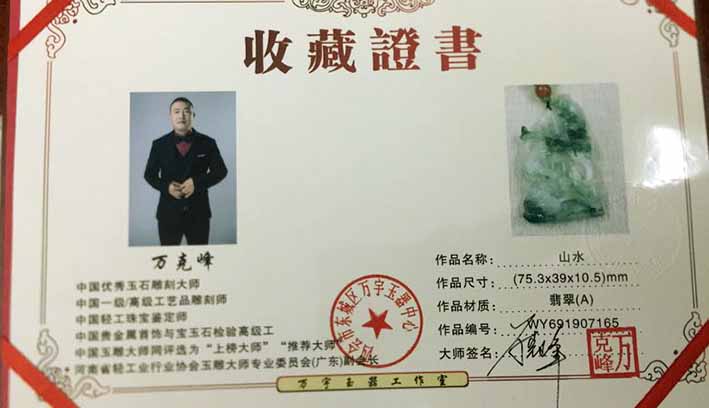 收藏證書
万克峰
中国优秀玉石雕刻大师
中国一级/高级工艺品雕刻师
中国轻工珠宝鉴定师
中国贵金属首饰与宝玉石检验高级工
中国玉雕大师网评选为“上榜大师”“推荐大师”
河南省轻工业行业协会玉雕大师专业委员会(广东)副会长
作品名称: 山水
作品尺寸: (75.3x39x10.5)mm
作品材质: 翡翠(A)
作品编号: WY691907165
大师签名:
万克峰
市东城区万字玉器中心
万字玉器工作室